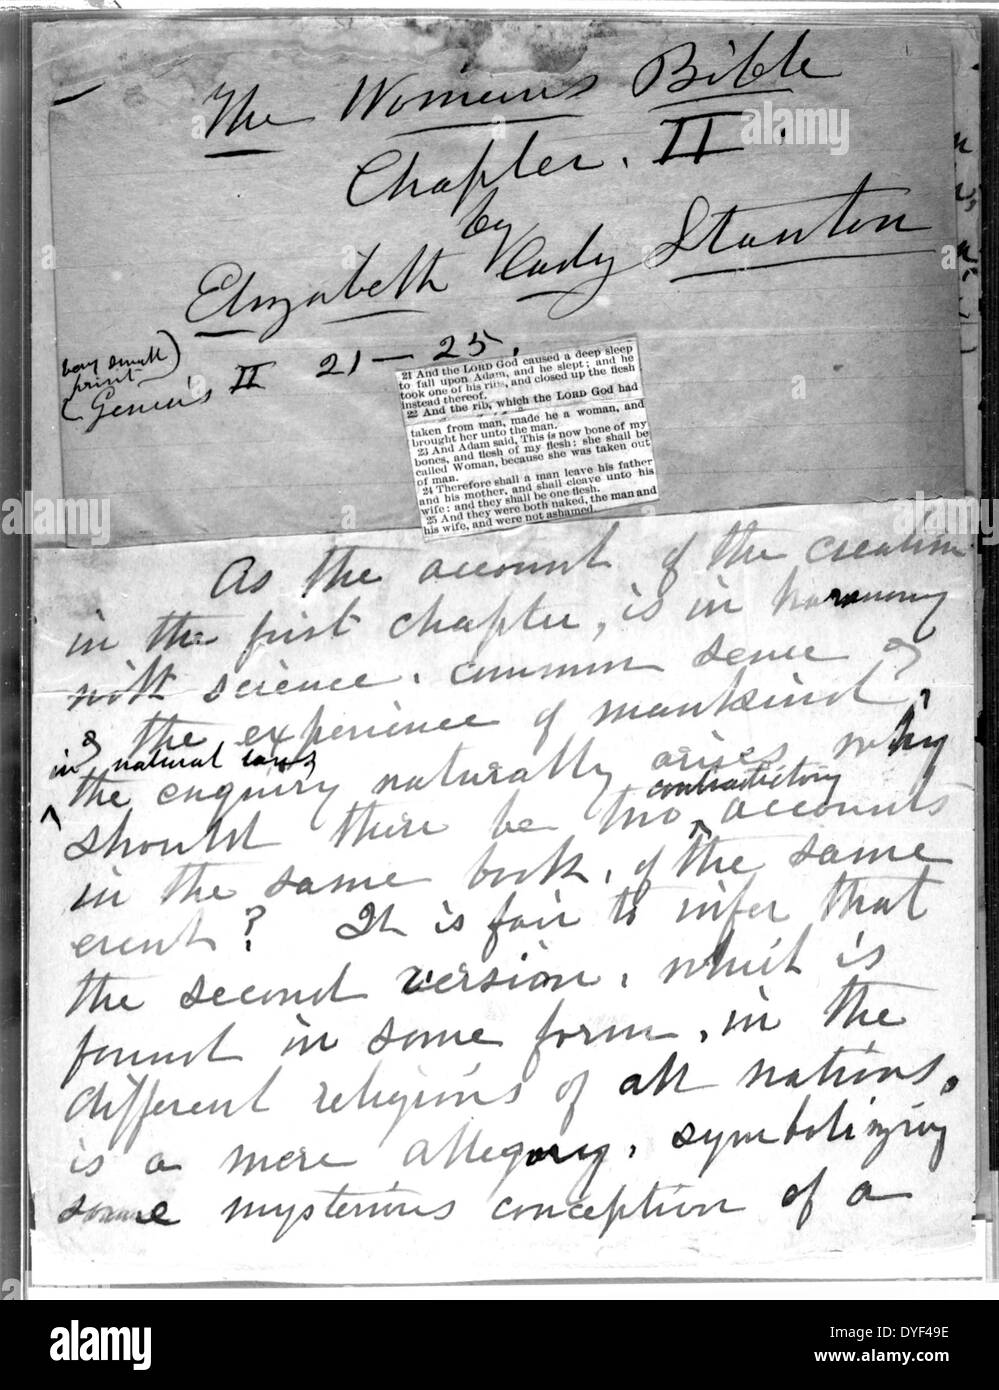 The Womans Bible
Chapter. II.
by
Elizabeth Cady Stanton
(very small
print)
(Genesis II 21–25.
21 And the LORD God caused a deep sleep
to fall upon Adam, and he slept; and he
took one of his ribs, and closed up the flesh
instead thereof.
22 And the rib, which the LORD God had
taken from man, made he a woman, and
brought her unto the man.
23 And Adam said, This is now bone of my
bones, and flesh of my flesh: she shall be
called Woman, because she was taken out
of man.
24 Therefore shall a man leave his father
and his mother, and shall cleave unto his
wife: and they shall be one flesh.
25 And they were both naked, the man and
his wife, and were not ashamed.
As the account of the creation
in the first chapter, is in harmony
with science, common sense &
& the experience of mankind,
in natural laws
the enquiry naturally arises, why
contradictory
should there be two accounts
in the same book, of the same
event? It is fair to infer that
the second version, which is
found in some form, in the
different religions of all nations,
is a mere allegory, symbolizing
some mysterious conception of a
alamy
alamy
www.alamy.com
Image ID: DYF49E